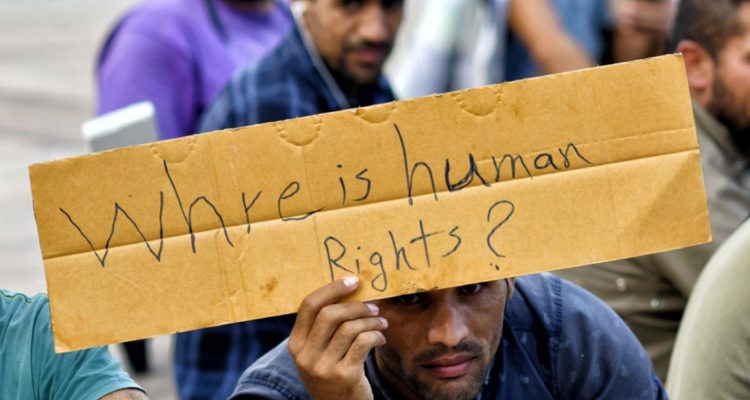 Whre is human
Rights?